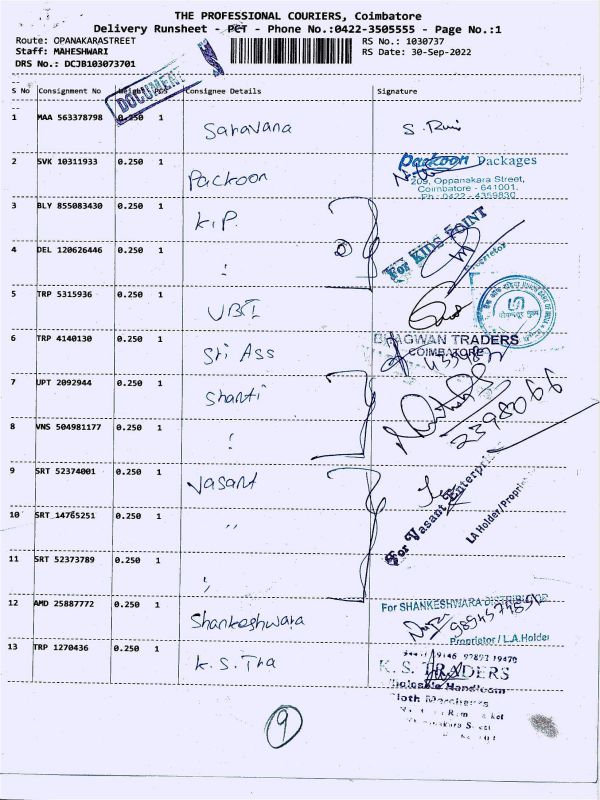 THE PROFESSIONAL COURIERS, Coimbatore
Delivery Runsheet - PCT - Phone No.:0422-3505555 - Page No.:1
Route: OPANAKARASTREET RS No.: 1030737
Staff: MAHESHWARI RS Date: 30-Sep-2022
DRS No.: DCJB103073701
DOCUMENT
S No Consignment No Weight PCS Consignee Details Signature
1 MAA 563378798 0.250 1 Saravana
2 SVK 10311933 0.250 1 Packoon
Packoon Packages
209, Oppanakara Street,
Coimbatore - 641001.
Ph : 0422 - 4359830
3 BLY 855083430 0.250 1 K.P.
For KIDS POINT
Proprietor
4 DEL 120626446 0.250 1 "
5 TRP 5315936 0.250 1 UBI
6 TRP 4140130 0.250 1 Sri Ass
BHAGWAN TRADERS
COIMBATORE
7 UPT 2092944 0.250 1 Shanti
8 VNS 504981177 0.250 1 "
9 SRT 52374001 0.250 1 Vasant
For Vasant Enterpri
LA Holder/Proprie
10 SRT 14765251 0.250 1 "
11 SRT 52373789 0.250 1 "
12 AMD 25887772 0.250 1 Shankeshwara
For SHANKESHWARA DISTRIBUTOR
Proprietor / L.A.Holder
13 TRP 1270436 0.250 1 K.S.Tra
K. S. TRADERS
Wholesale Handloom
Cloth Merchants
9